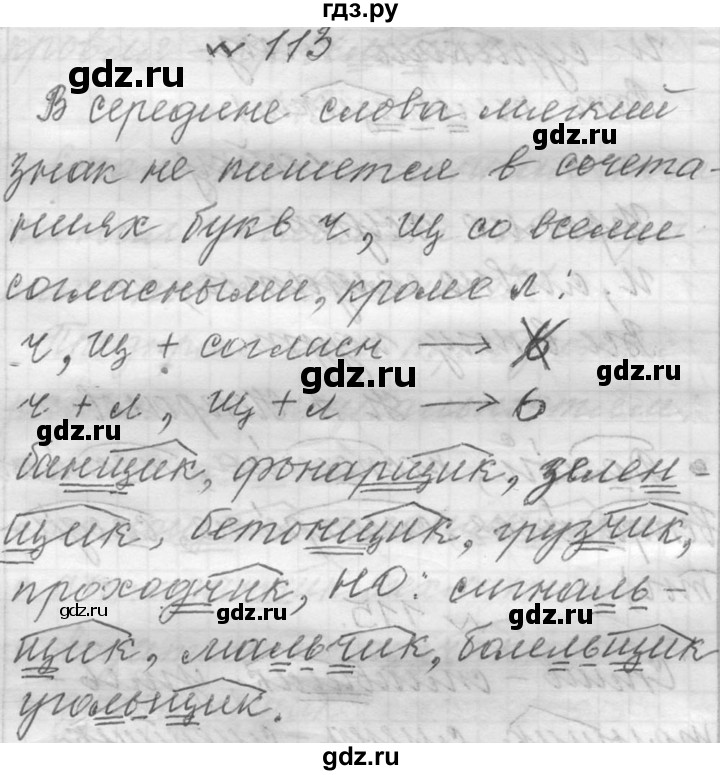 гдз.ру
№ 113
gdz.ru
В середине слова мягкий
gdz.ru
знак не пишется в сочета-
ниях букв ч, щ со всеми
согласными, кроме л:
ч, щ + согласн → ь
gdz.ru
gdz.ru
ч + л, щ + л → ь
gdz.ru
банщик, фонарщик, зелен-
щик, бетонщик, грузчик,
проходчик, НО: сигналь-
gdz.ru
gdz.ru
gdz.ru
щик, мальчик, болельщик
угольщик.
gdz.ru